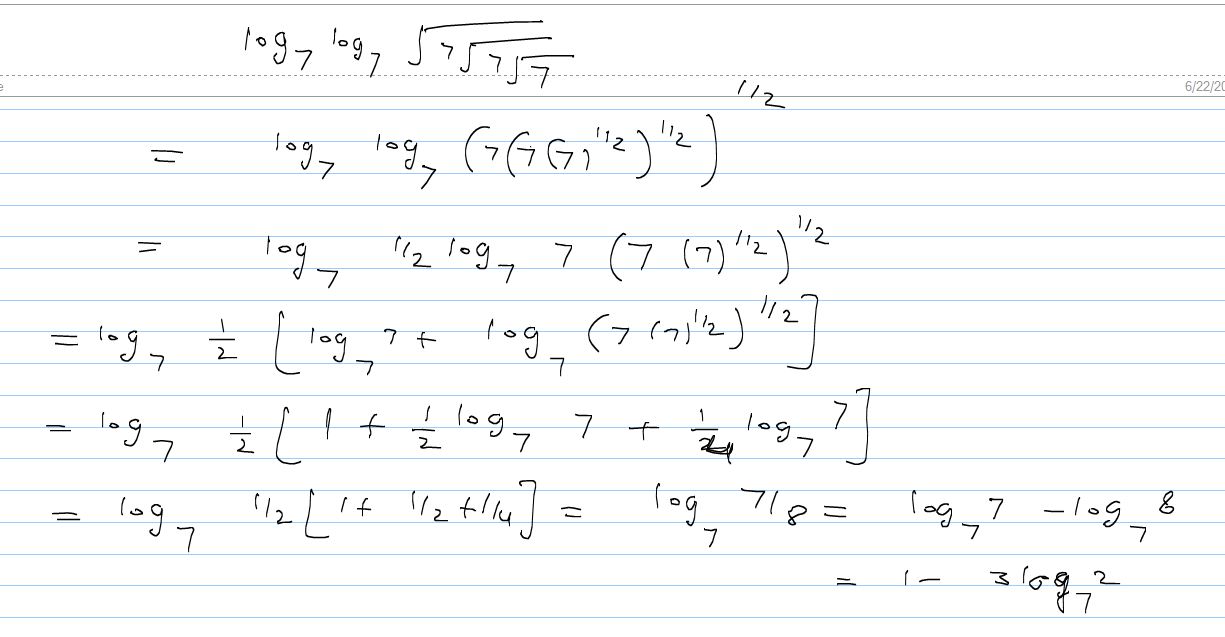 log₇ log₇ √(7√(7√7))
e 6/22/20
= log₇ log₇ (7(7(7)^1/2)^1/2)^1/2
= log₇ 1/2 log₇ 7 (7 (7)^1/2)^1/2
= log₇ 1/2 [log₇ 7 + log₇ (7 (7)^1/2)^1/2]
= log₇ 1/2 [1 + 1/2 log₇ 7 + 1/4 log₇ 7]
= log₇ 1/2 [1 + 1/2 + 1/4] = log₇ 7/8 = log₇ 7 - log₇ 8
= 1 - 3 log₇ 2